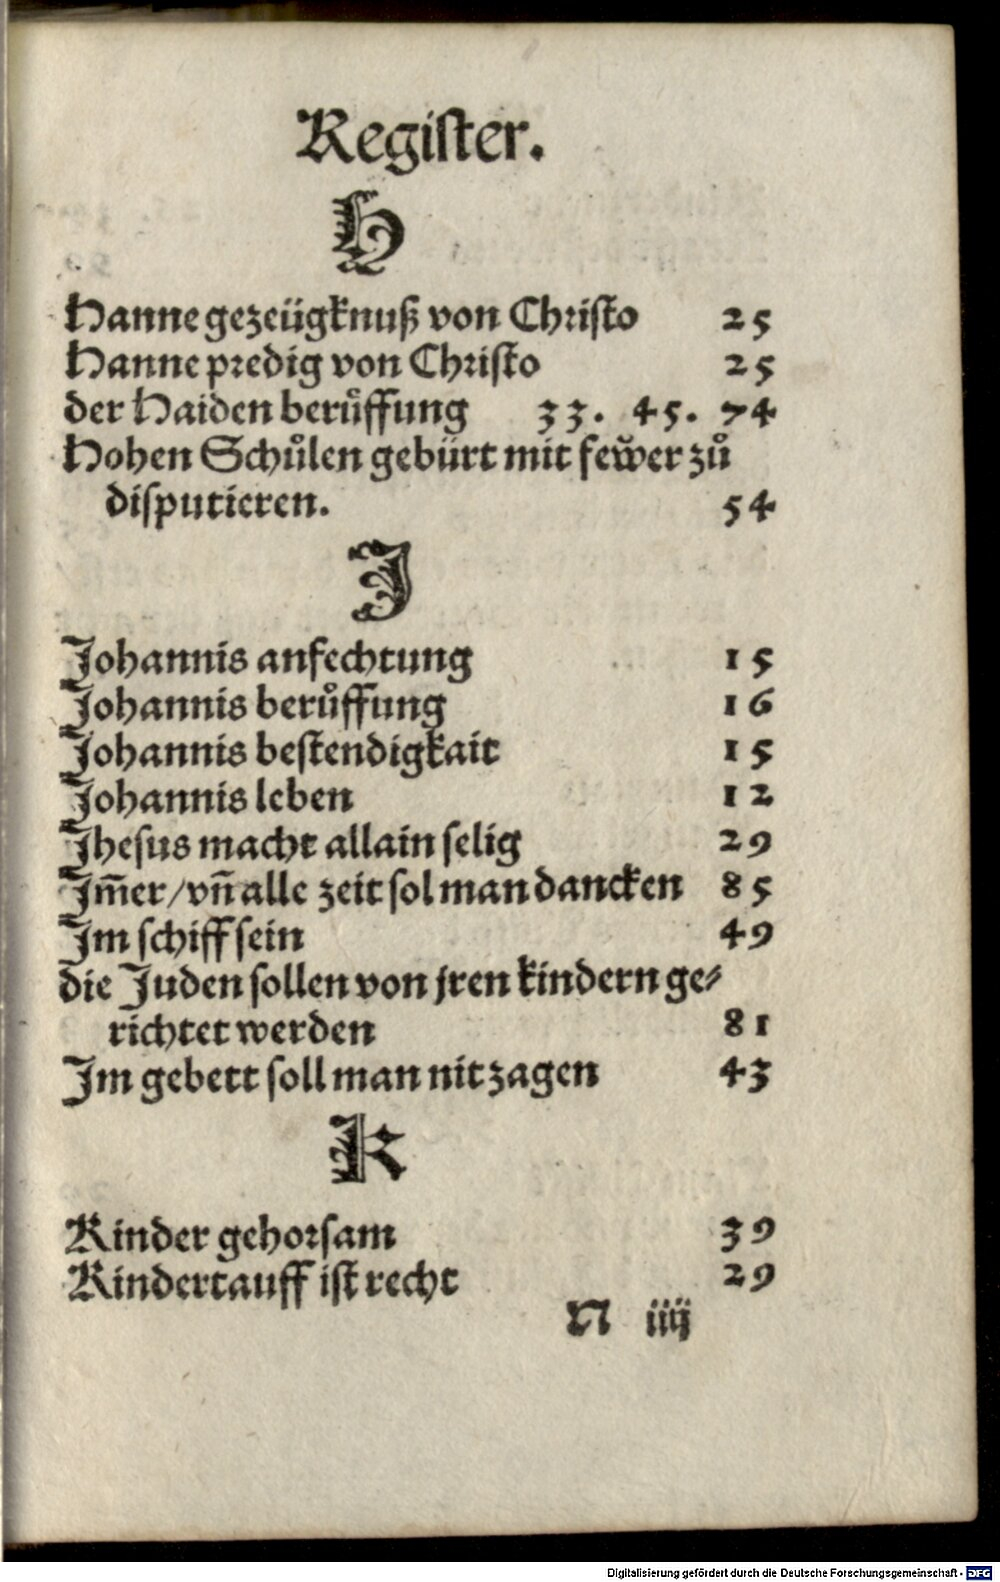 Regiſter.
H
Hanne gezeügknuß von Chriſto 25
Hanne predig von Chriſto 25
der Haiden berůffung 33. 45. 74
Hohen Schůlen gebürt mit few̌er zů
diſputieren. 54
J
Johannis anfechtung 15
Johannis berůffung 16
Johannis beſtendigkait 15
Johannis leben 12
Jheſus macht allain ſelig 29
Jm̄er/vn̄ alle zeit ſol man dancken 85
Jm ſchiff ſein 49
die Juden ſollen von jren kindern ge⸗
richtet werden 81
Jm gebett ſoll man nit zagen 43
K
Kinder gehorſam 39
Kindertauff iſt recht 29
N iiij
Digitalisierung gefördert durch die Deutsche Forschungsgemeinschaft - DFG